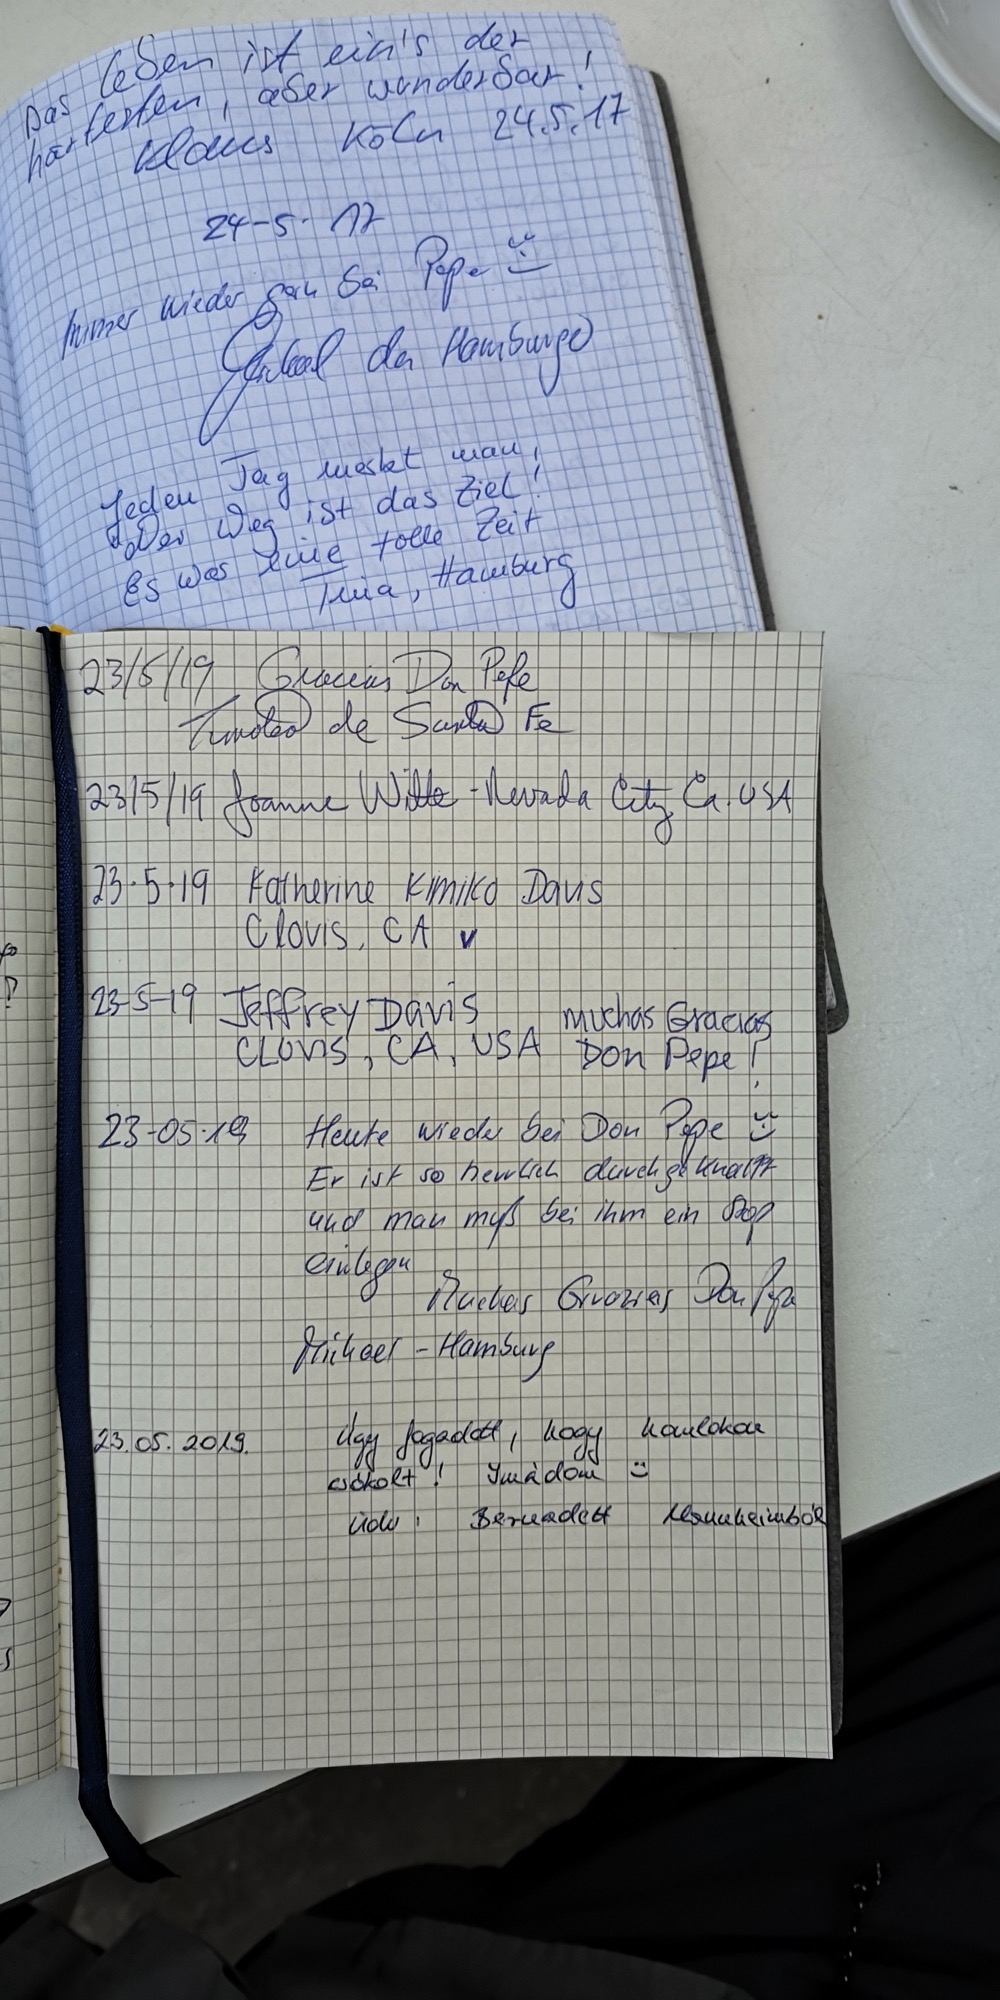 Das leben ist ein's der
härtesten, aber wunderbar!
Klaus Köln 24.5.17
24-5-17
Immer wieder gern bei Pepe
der Hamburger
Jeden Tag merkt man,
Der Weg ist das Ziel!
Es war eine tolle Zeit
Tina, Hamburg
23/5/19 Gracias Don Pepe
Timoteo de Santa Fe
23/5/19 Joanne Witte - Nevada City Ca. USA
23.5.19 Katherine Kimiko Davis
Clovis, CA
23-5-19 Jeffrey Davis muchas Gracias
CLOVIS, CA, USA Don Pepe!
23-05-19 Heute wieder bei Don Pepe
Er ist so herrlich durchgeknallt
und man muß bei ihm ein Stop
einlegen
Muchas Grazias Don Pepe
Michael - Hamburg
23.05.2019. Úgy fogadott, hogy
csókolt! Imádom
üdv: Bernadett Mannheimből